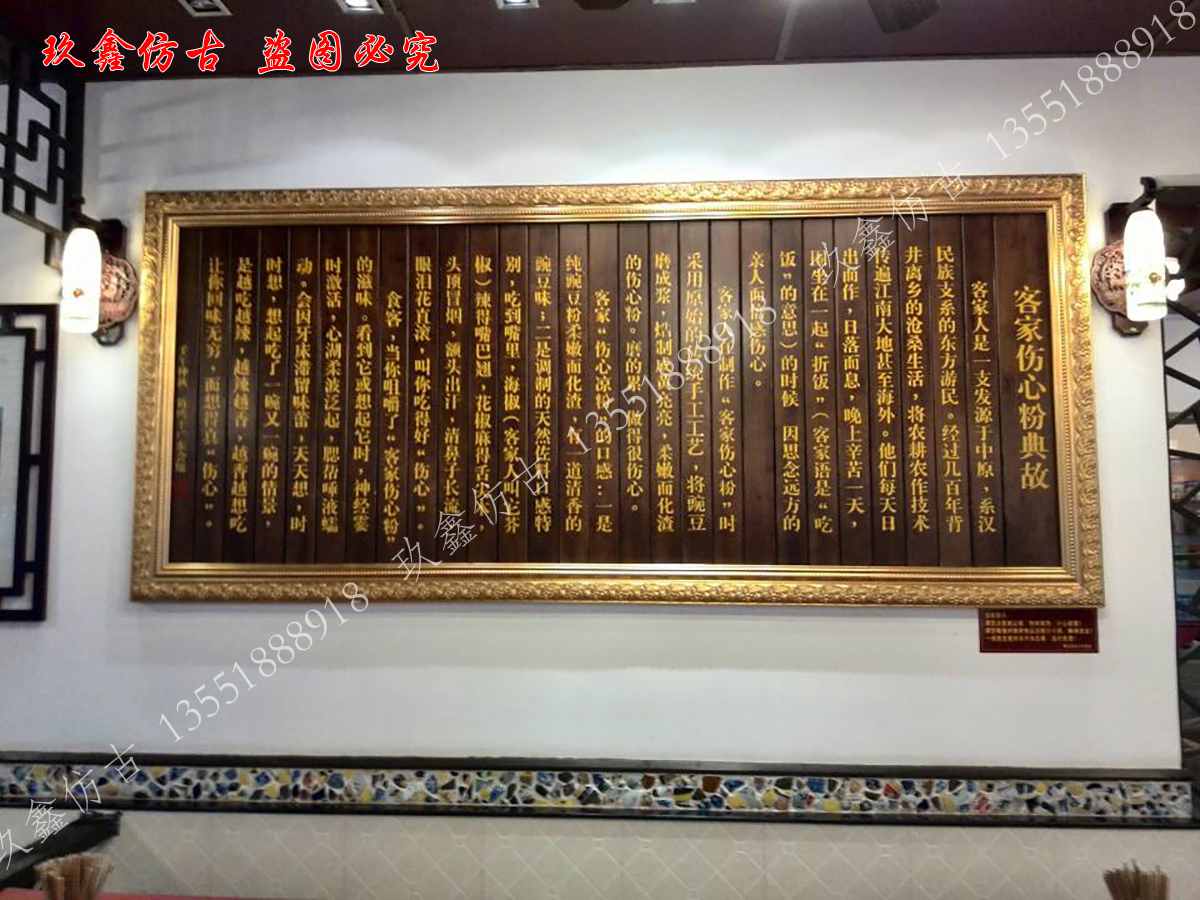 玖鑫仿古 盗图必究
客家伤心粉典故
客家人是一支发源于中原，系汉
民族支系的东方游民。经过几百年背
井离乡的沧桑生活，将农耕农作技术
传遍江南大地甚至海外。他们每天日
出而作，日落而息，晚上辛苦一天，
围坐在一起“折饭”（客家语是“吃
饭”的意思）的时候 因思念远方的
亲人而倍感伤心。
客家人在制作“客家伤心粉”时
采用原始的纯手工工艺，将豌豆
磨成浆，焙制成亮亮，柔嫩而化渣
的伤心粉。磨的累，做得很伤心。
客家“伤心凉粉”的口感：一是
纯豌豆粉柔嫩而化渣，有一道清香的
豌豆味；二是调制的天然佐料口感特
别，吃到嘴里，海椒（客家人叫法芥
椒）辣得嘴巴翘，花椒麻得舌尖
头顶冒烟，额头出汗，清鼻子长流，
眼泪花直滚，叫你吃得好“伤心”。
食客，当你咀嚼了“客家伤心粉”
的滋味。看到它或想起它时，神经霎
时激活，心湖柔波泛起，腮帮唾液蠕
动。会因牙床滞留味蕾，天天想，时
时想，想起吃了一碗又一碗的情景，
是越吃越辣，越辣越香，越香越想吃
让你回味无穷，而想得真“伤心”。
玖鑫仿古 13551888918
玖鑫仿古 13551888918
玖鑫仿古 13551888918